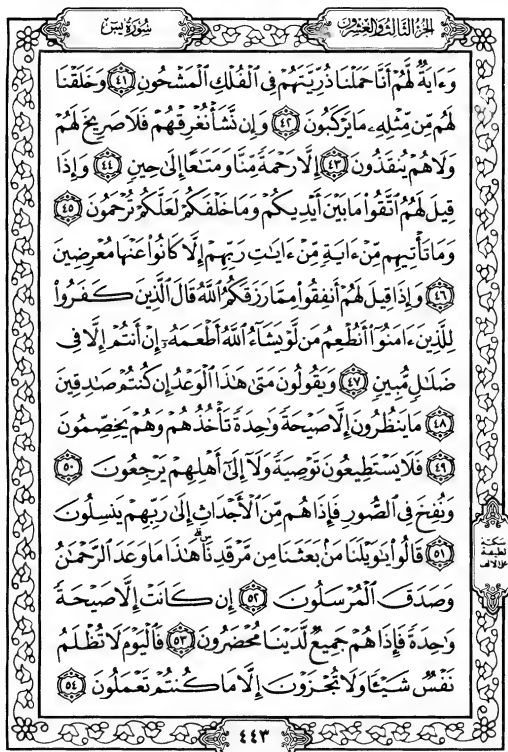 سُورَةُ يسٓ
الجُزءُ الثَّالِثُ وَالعِشرُونَ
وَءَايَةٌ لَّهُمۡ أَنَّا حَمَلۡنَا ذُرِّيَّتَهُمۡ فِي ٱلۡفُلۡكِ ٱلۡمَشۡحُونِ ٤١ وَخَلَقۡنَا
لَهُم مِّن مِّثۡلِهِۦ مَا يَرۡكَبُونَ ٤٢ وَإِن نَّشَأۡ نُغۡرِقۡهُمۡ فَلَا صَرِيخَ لَهُمۡ
وَلَا هُمۡ يُنقَذُونَ ٤٣ إِلَّا رَحۡمَةٗ مِّنَّا وَمَتَٰعًا إِلَىٰ حِينٖ ٤٤ وَإِذَا
قِيلَ لَهُمُ ٱتَّقُواْ مَا بَيۡنَ أَيۡدِيكُمۡ وَمَا خَلۡفَكُمۡ لَعَلَّكُمۡ تُرۡحَمُونَ ٤٥
وَمَا تَأۡتِيهِم مِّنۡ ءَايَةٖ مِّنۡ ءَايَٰتِ رَبِّهِمۡ إِلَّا كَانُواْ عَنۡهَا مُعۡرِضِينَ
٤٦ وَإِذَا قِيلَ لَهُمۡ أَنفِقُواْ مِمَّا رَزَقَكُمُ ٱللَّهُ قَالَ ٱلَّذِينَ كَفَرُواْ
لِلَّذِينَ ءَامَنُوٓاْ أَنُطۡعِمُ مَن لَّوۡ يَشَآءُ ٱللَّهُ أَطۡعَمَهُۥٓ إِنۡ أَنتُمۡ إِلَّا فِي
ضَلَٰلٖ مُّبِينٖ ٤٧ وَيَقُولُونَ مَتَىٰ هَٰذَا ٱلۡوَعۡدُ إِن كُنتُمۡ صَٰدِقِينَ
٤٨ مَا يَنظُرُونَ إِلَّا صَيۡحَةٗ وَٰحِدَةٗ تَأۡخُذُهُمۡ وَهُمۡ يَخِصِّمُونَ
٤٩ فَلَا يَسۡتَطِيعُونَ تَوۡصِيَةٗ وَلَآ إِلَىٰٓ أَهۡلِهِمۡ يَرۡجِعُونَ ٥٠
وَنُفِخَ فِي ٱلصُّورِ فَإِذَا هُم مِّنَ ٱلۡأَجۡدَاثِ إِلَىٰ رَبِّهِمۡ يَنسِلُونَ
٥١ قَالُواْ يَٰوَيۡلَنَا مَنۢ بَعَثَنَا مِن مَّرۡقَدِنَاۜۗ هَٰذَا مَا وَعَدَ ٱلرَّحۡمَٰنُ
وَصَدَقَ ٱلۡمُرۡسَلُونَ ٥٢ إِن كَانَتۡ إِلَّا صَيۡحَةٗ
وَٰحِدَةٗ فَإِذَا هُمۡ جَمِيعٞ لَّدَيۡنَا مُحۡضَرُونَ ٥٣ فَٱلۡيَوۡمَ لَا تُظۡلَمُ
نَفۡسٞ شَيۡـٔٗا وَلَا تُجۡزَوۡنَ إِلَّا مَا كُنتُمۡ تَعۡمَلُونَ ٥٤
سكتة
لطيفة
على الألف
٤٤٣